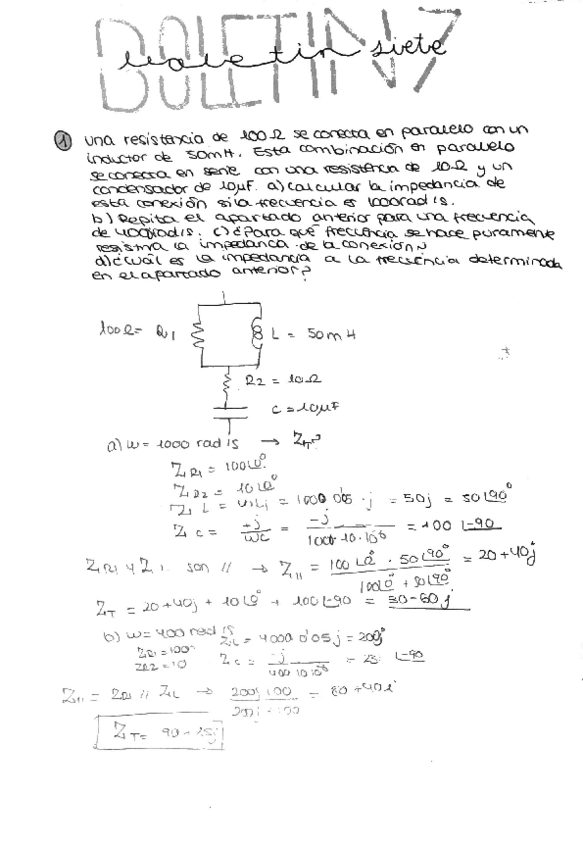 BOLETIN 7
boletin siete
1 una resistencia de 100Ω se conecta en paralelo con un
inductor de 50mH. Esta combinación en paralelo
se conecta en serie con una resistencia de 10Ω y un
condensador de 10μF. a) calcular la impedancia de
esta conexión si la frecuencia es 1000rad/s.
b) Repita el apartado anterior para una frecuencia
de 400rad/s. c) ¿Para qué frecuencia se hace puramente
resistiva la impedancia de la conexión?
d) ¿cuál es la impedancia a la frecuencia determinada
en el apartado anterior?
100Ω = R1 L = 50mH
R2 = 10Ω
C = 10μF
a) w = 1000 rad/s → ZT?
ZR1 = 100∠0°
ZR2 = 10∠0°
ZL = wLj = 1000 0'05 · j = 50j = 50∠90°
ZC = -j/wC = -j/1000·10·10⁻⁶ = 100∠-90
ZR1 y ZL son // → Z// = 100∠0° · 50∠90°/100∠0° + 50∠90° = 20+40j
ZT = 20+40j + 10∠0° + 100∠-90 = 30-60j
b) w = 400 rad/s
ZR1 = 100
ZR2 = 10
Z// = ZR1 // ZL → 200j 100 = 80+40j
ZT =